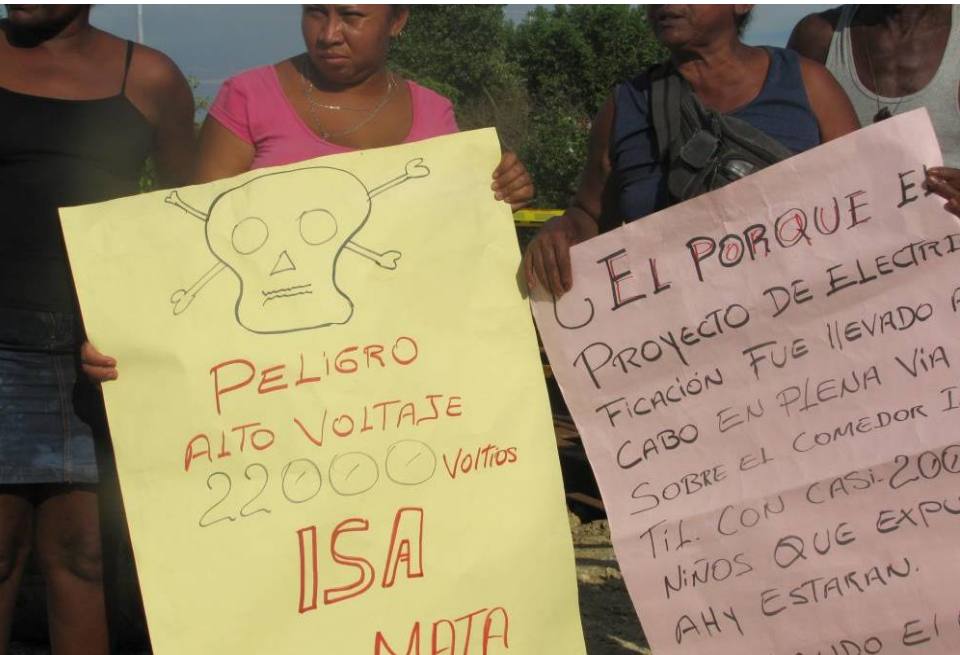 PELIGRO
ALTO VOLTAJE
22000 Voltios
ISA
MATA
¿EL PORQUE EL
PROYECTO DE ELECTRI
FICACIÓN FUE llEVADO A
CABO EN PLENA VIA
SOBRE EL COMEDOR I
TIL. CON CASI-200
NIÑOS QUE EXPU
AHY ESTARAN.